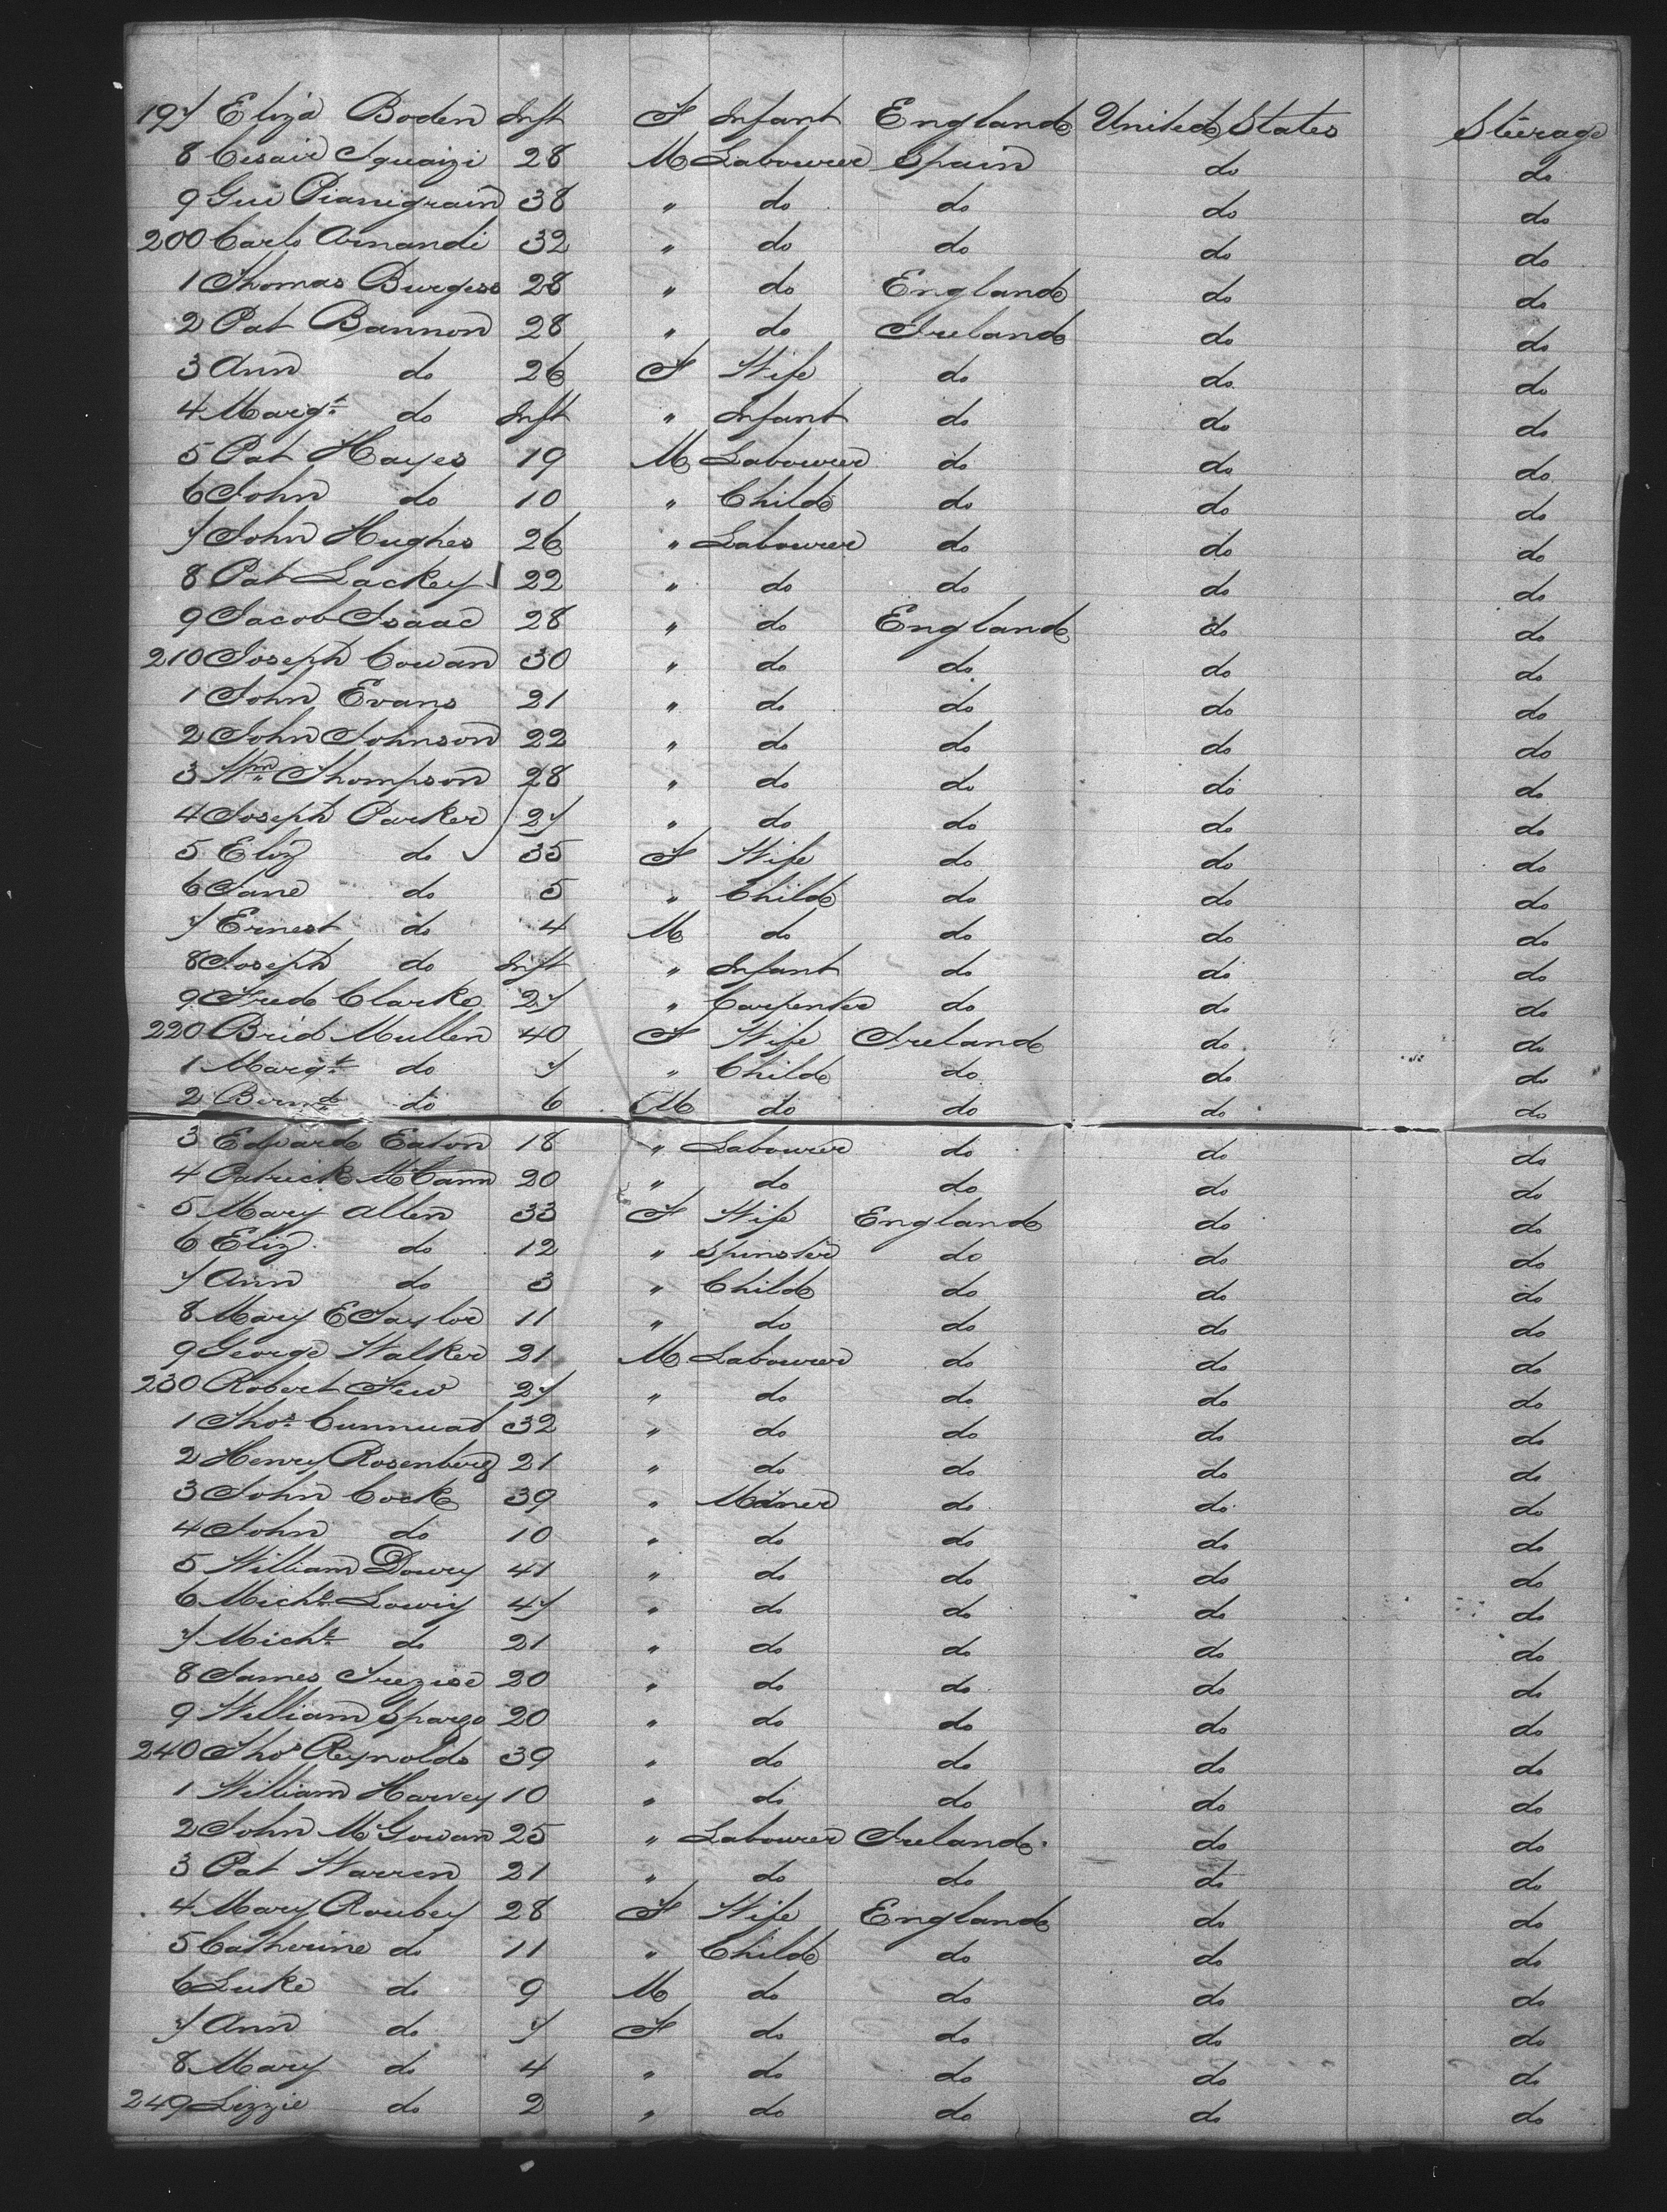 197 Eliza Boden Inft F Infant England United States Steerage
8 Cesair Iguaizi 28 M Labourer Spain do do
9 Gui Pianigrain 38 " do do do do
200 Carlo Arnandi 32 " do do do do
1 Thomas Burgess 28 " do England do do
2 Pat Bannon 28 " do Ireland do do
3 Ann do 26 F Wife do do do
4 Margt do Inft " Infant do do do
5 Pat Hayes 19 M Labourer do do do
6 John do 10 " Child do do do
7 John Hughes 26 " Labourer do do do
8 Pat Lackey 22 " do do do do
9 Jacob Isaac 28 " do England do do
210 Joseph Cowan 30 " do do do do
1 John Evans 21 " do do do do
2 John Johnson 22 " do do do do
3 Wm Thompson 28 " do do do do
4 Joseph Parker 27 " do do do do
5 Eliz do 35 F Wife do do do
6 Jane do 5 " Child do do do
7 Ernest do 4 M do do do do
8 Joseph do Inft " Infant do do do
9 Fred Clark 27 " Carpenter do do do
220 Brid Mullen 40 F Wife Ireland do do
1 Margt do 7 " Child do do do
2 Bernd do 6 M do do do do
3 Edward Eaton 18 " Labourer do do do
4 Patrick McCann 20 " do do do do
5 Mary Allen 33 F Wife England do do
6 Eliz do 12 " Spinster do do do
7 Ann do 3 " Child do do do
8 Mary E Taylor 11 " do do do do
9 George Walker 21 M Labourer do do do
230 Robert Few 27 " do do do do
1 Thos 32 " do do do do
2 Henry Rosenberg 21 " do do do do
3 John Cock 39 " Miner do do do
4 John do 10 " do do do do
5 William Dowry 41 " do do do do
6 Michl Lowry 47 " do do do do
7 Michl do 21 " do do do do
8 James Trezise 20 " do do do do
9 William Spargo 20 " do do do do
240 Thos Reynolds 39 " do do do do
1 William Harvey 10 " do do do do
2 John McGowan 25 " Labourer Ireland do do
3 Pat Warren 21 " do do do do
4 Mary Roubey 28 F Wife England do do
5 Catherine do 11 " Child do do do
6 Luke do 9 M do do do do
7 Ann do 7 F do do do do
8 Mary do 4 " do do do do
249 Lizzie do 2 " do do do do